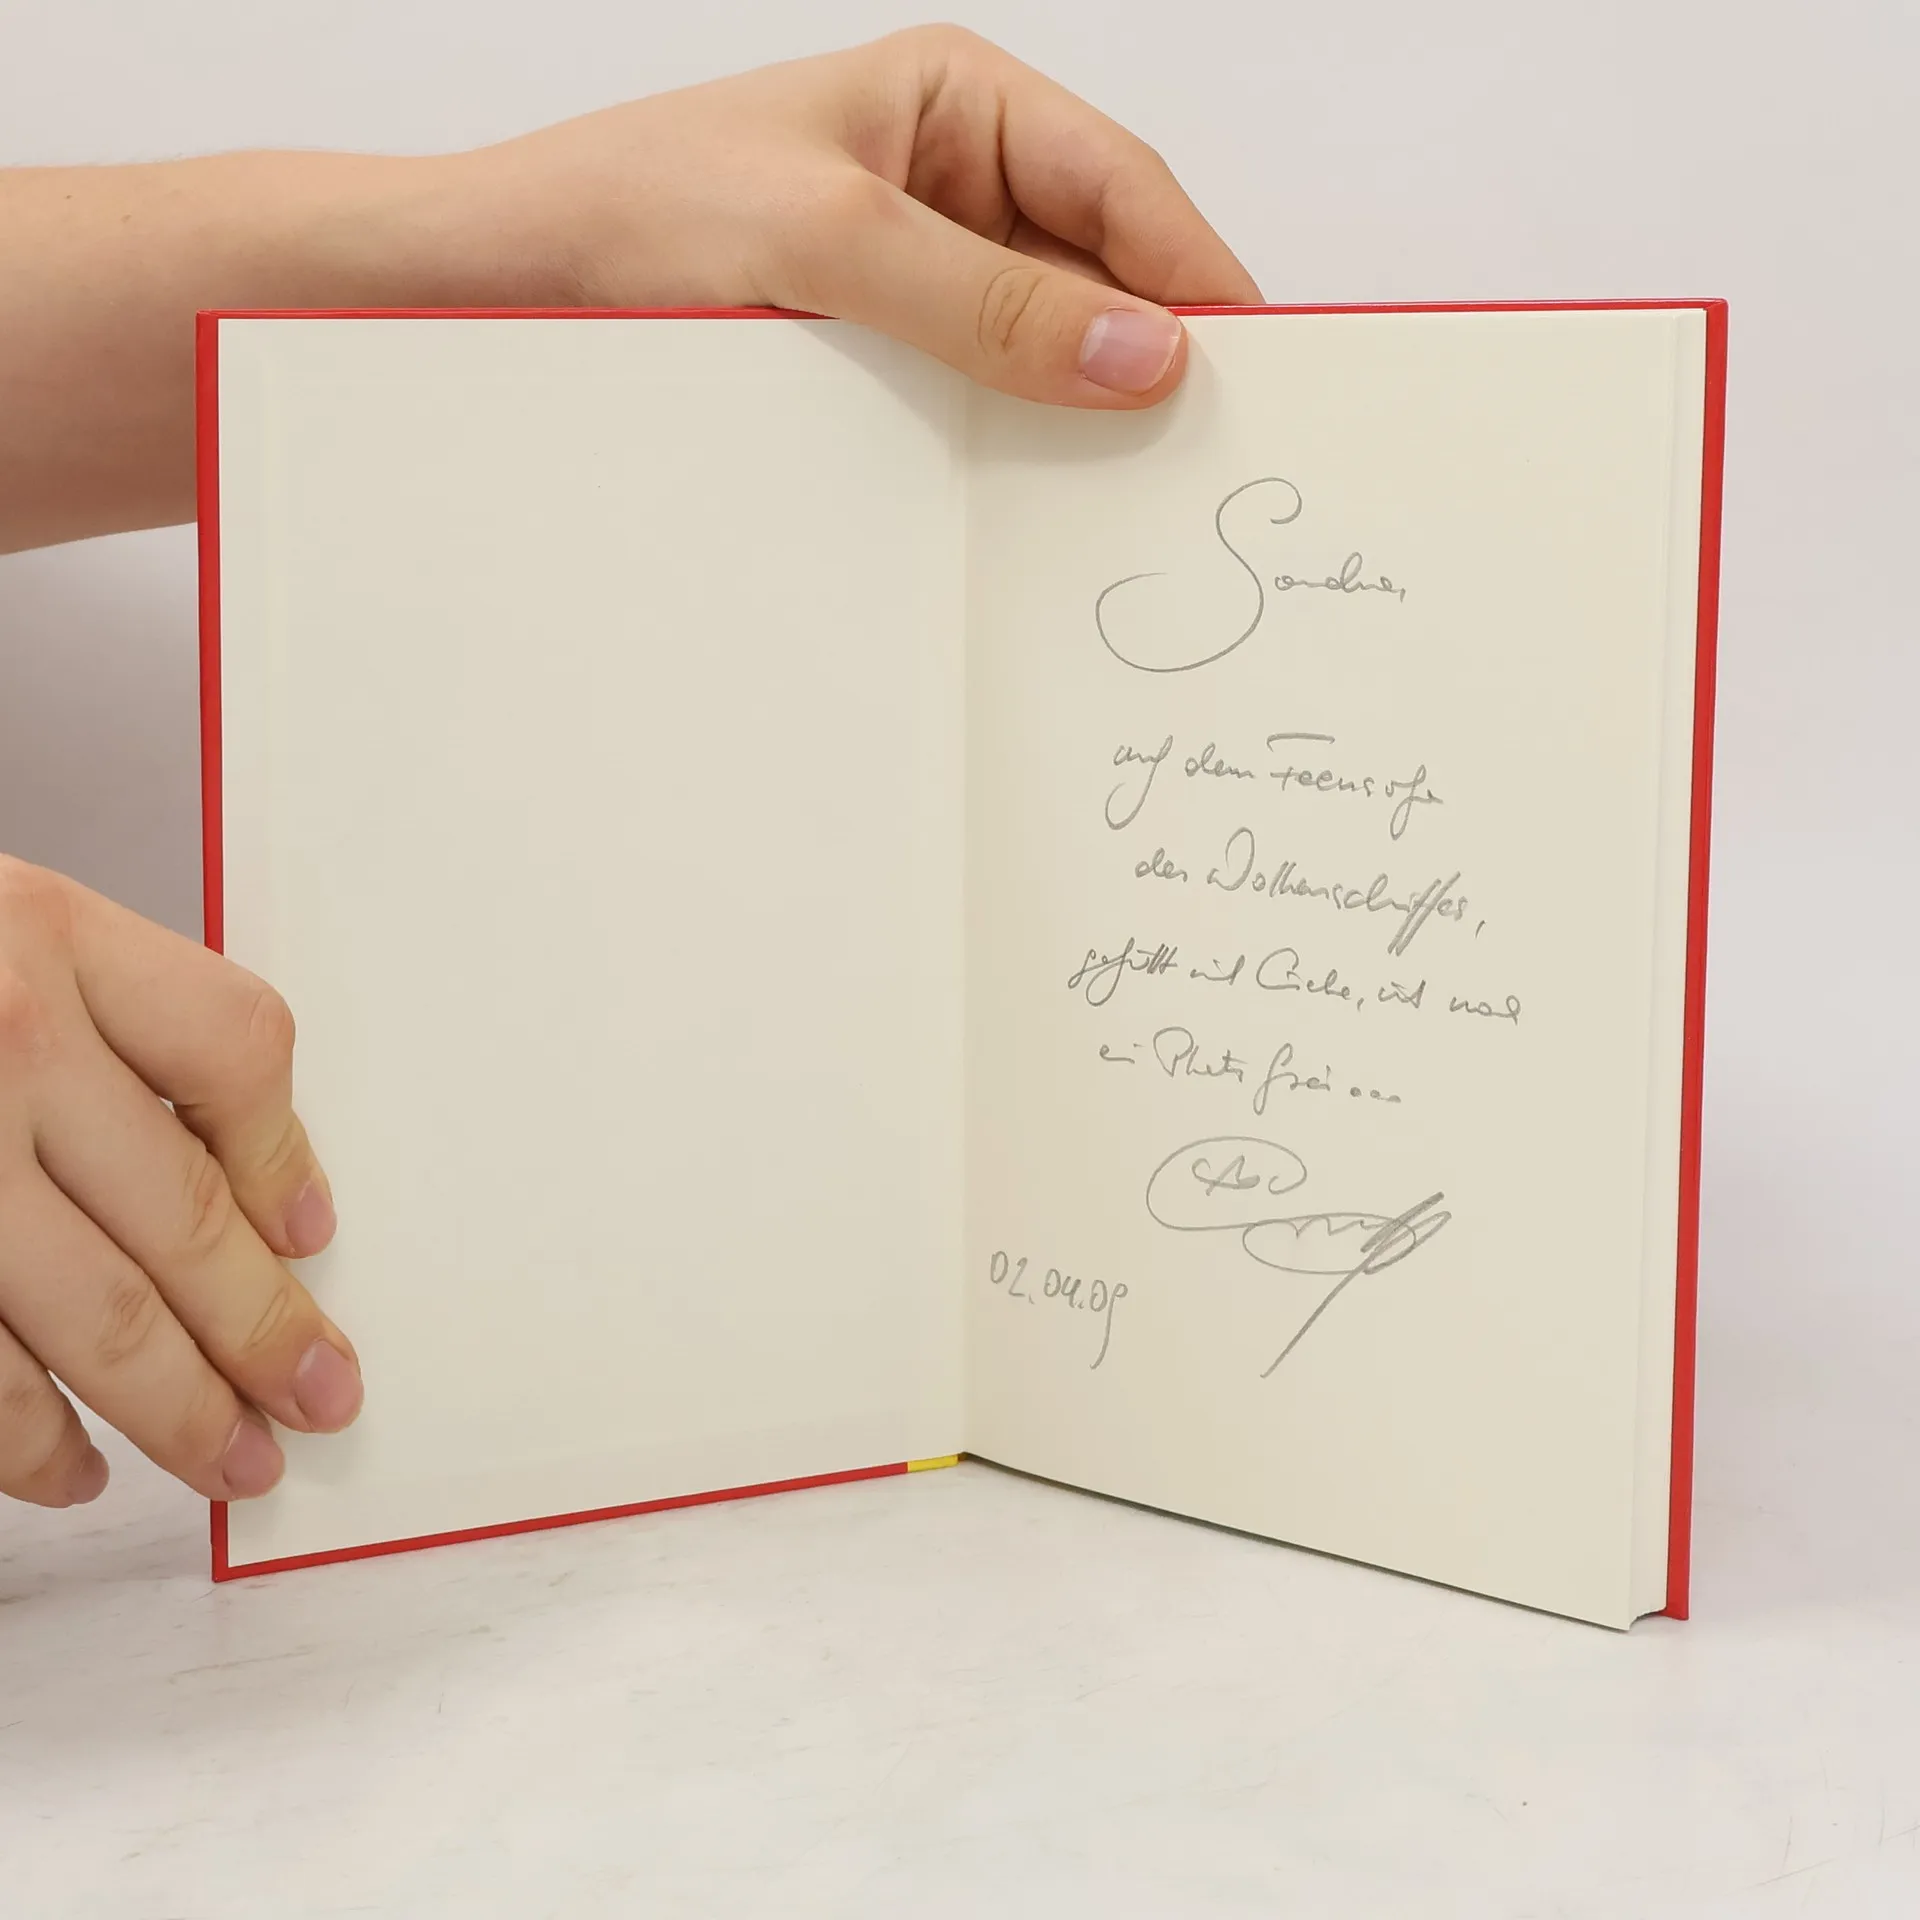 auf dem Feensofa
des Wolkenschiffes,
gefüllt mit Liebe, ist noch
ein Platz frei ...
02.04.09